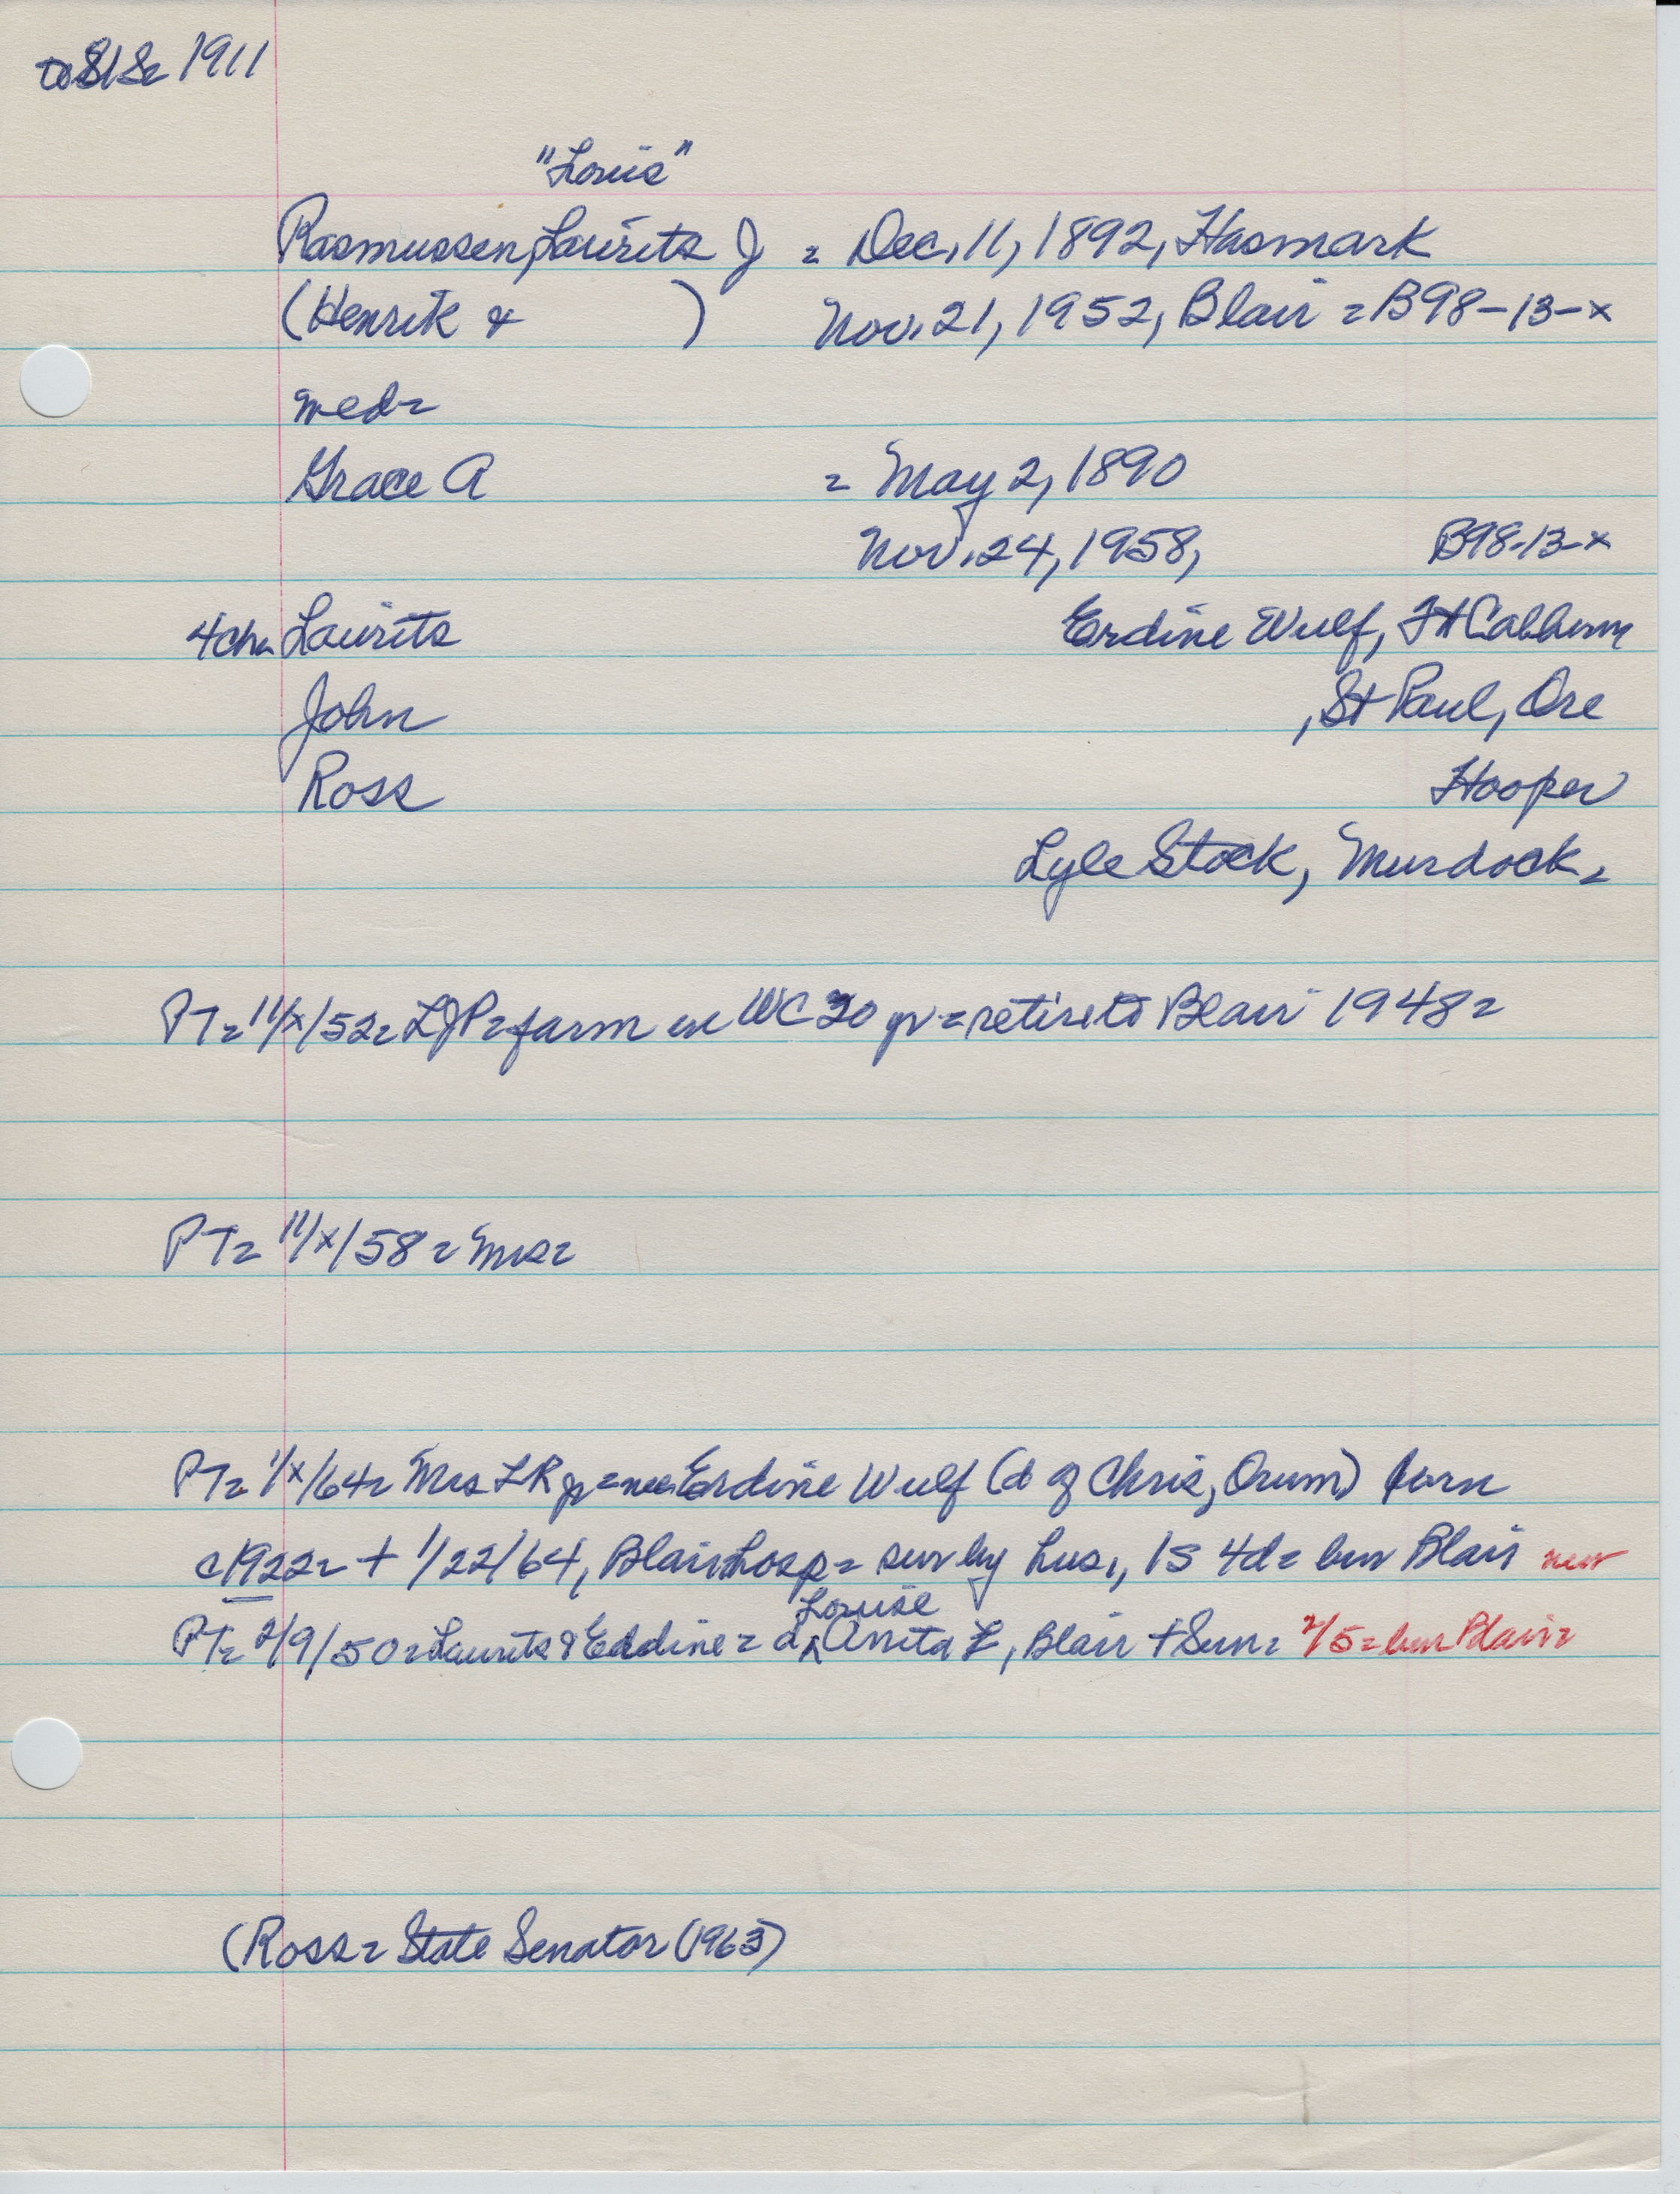 to 1911
"Louis"
Rasmussen, Laurits J = Dec. 11, 1892, Hasmark
(Henrik & ) Nov. 21, 1952, Blair = B98-13-x
med =
Grace A = May 2, 1890
Nov. 24, 1958, B98-13-x
4 ch = Laurits Erdine Wulf, Ft Calhoun
John , St Paul, Ore
Ross Hooper
Lyle Stock, Murdock =
PT = 11/x/52 = LJR = farm in WC 30 yr = retire to Blair 1948 =
PT = 11/x/58 = Mrs =
PT = 1/x/64 = Mrs LR jr = nee Erdine Wulf (d of Chris, Orum) born
c1922 = + 1/22/64, Blair hosp = surv by hus., 1S 4d = bur Blair
Louise
PT = 2/9/50 = Laurits & Eddine = d, Anita L, Blair + Sun = 2/5 = bur Blair =
(Ross = State Senator (1963)